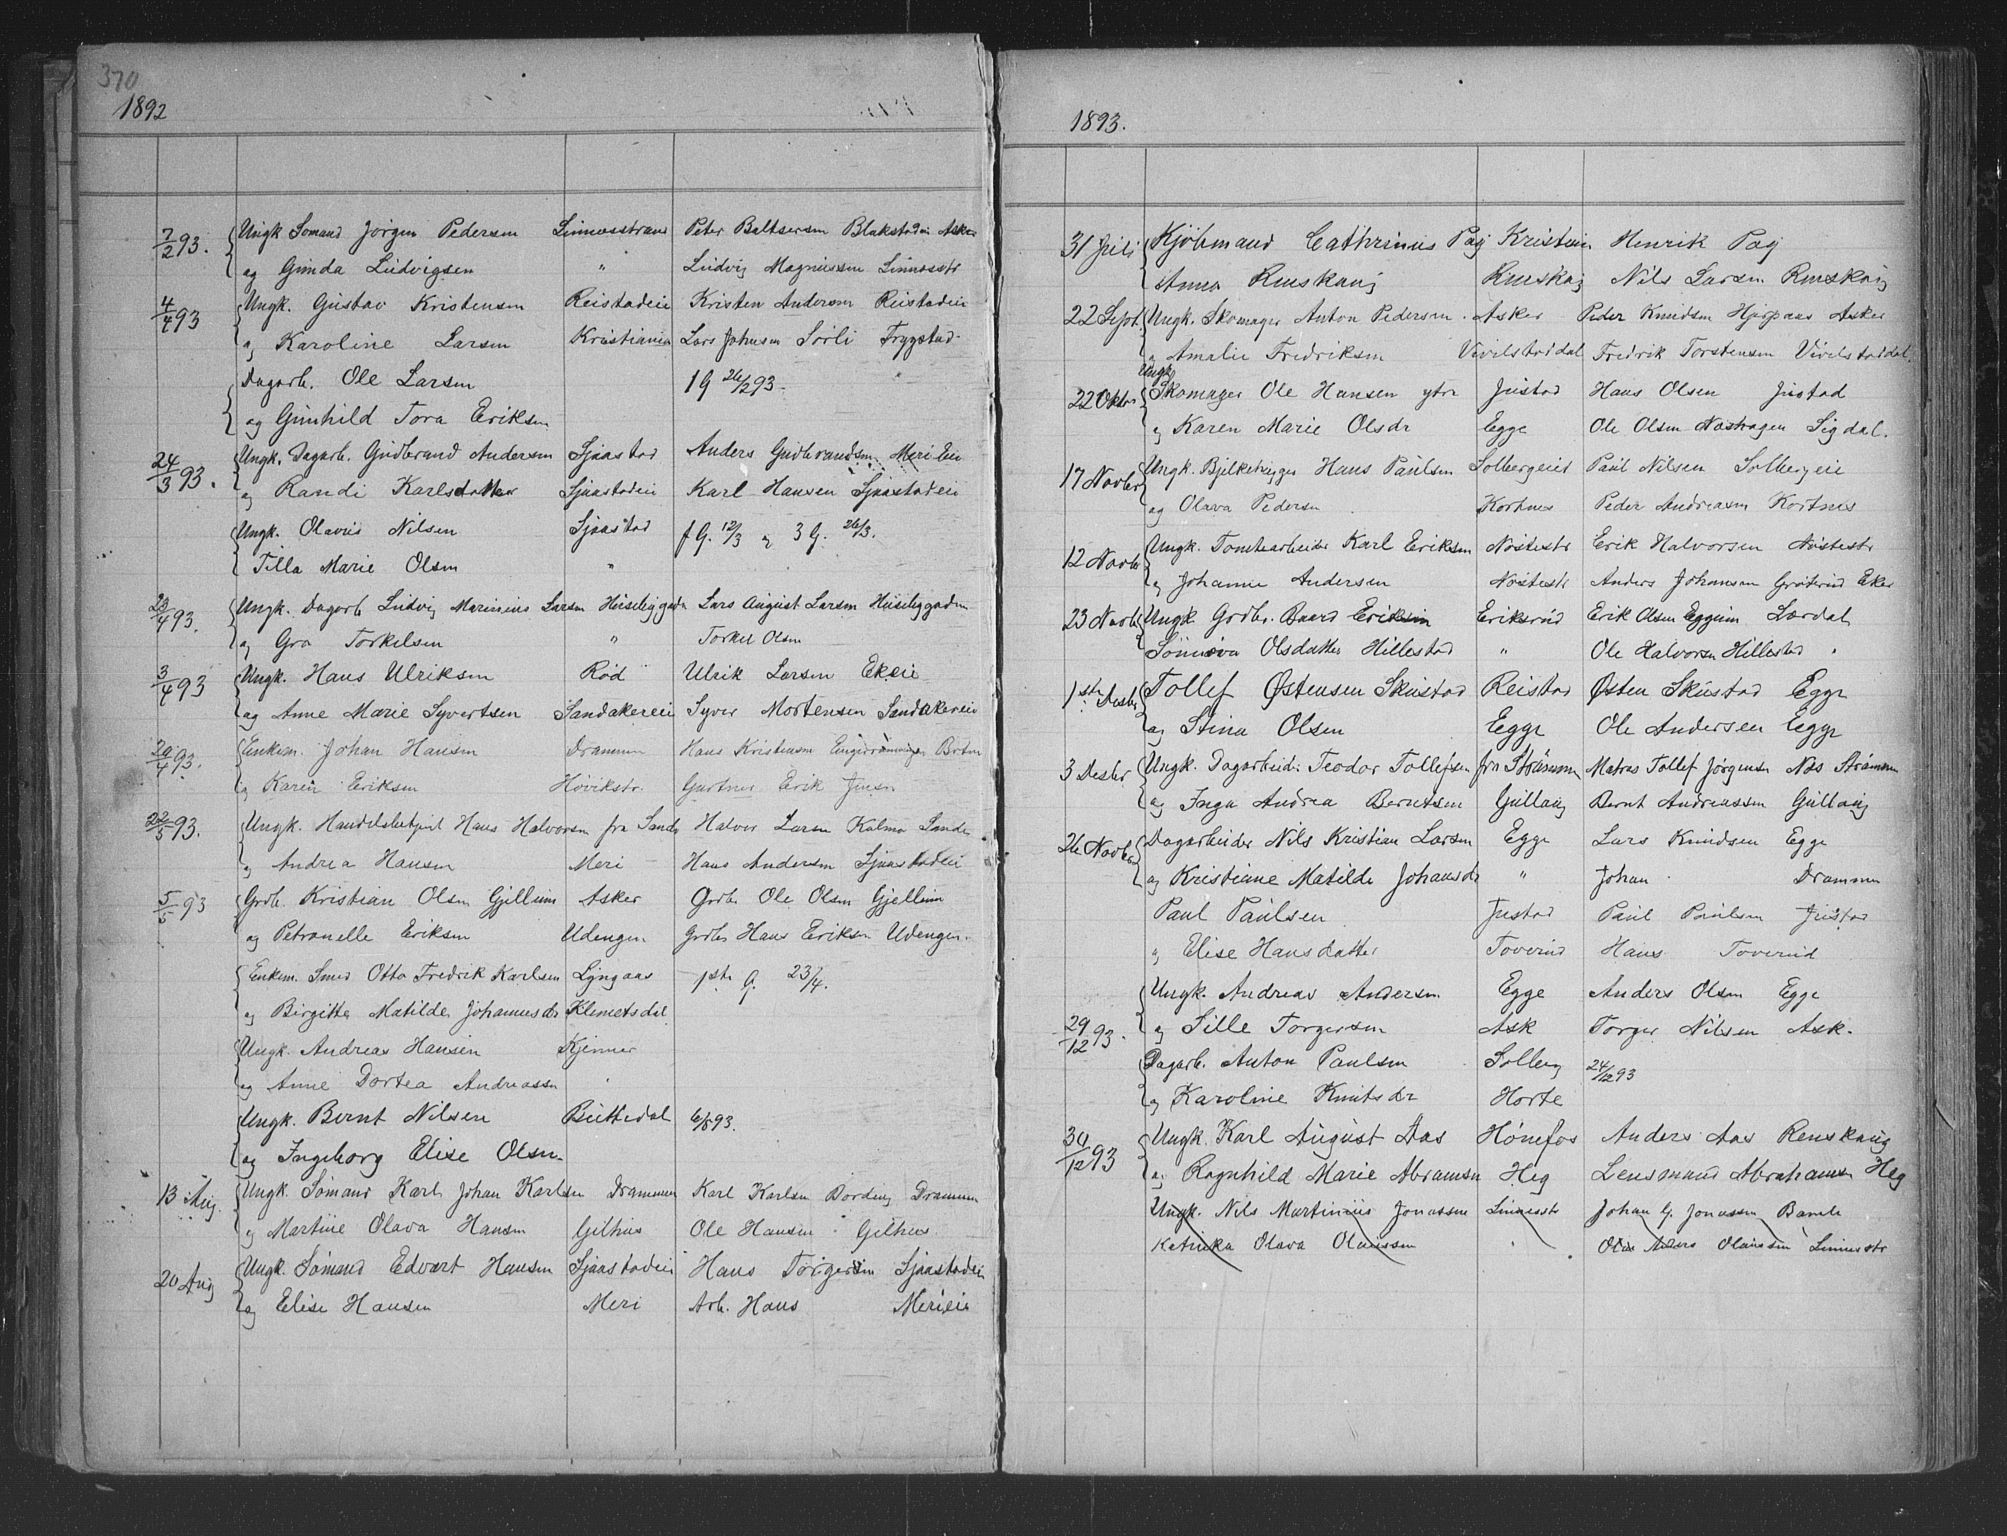 370
1892
7/2 93. Ungk Sømand Jörgen Pedersen Linnesstrand Peter Baltsersen Blakstadei Asker
og Gunda Ludvigsen " Ludvig Magnussen Linnesstr
4/4 93 Ungk. Gustav Kristensen Reistadeie Kristen Andersen Reistadeie
og Karoline Larsen Kristiania Lars Johnsen Sörli Trygstad
Dagarb. Ole Larsen 1 G 26/2 93. "
og Gunhild Tora Eriksen
24/3 93. Ungk. Dagarb. Gudbrand Andersen Sjaastad Anders Gudbrandsen Meri Eie
og Randi Karlsdatter Sjaastadeie Karl Hansen Sjaastadeie
Ungk. Olavus Nilsen Sjaastad f G. 12/3 og 3 G. 26/3.
Tilla Marie Olsen "
23/4 93. Ungk. Dagarb Ludvig Marinius Larsen Husebyggaden Lars August Larsen Husebyggaden
og Gro Torkelsen " Torkel Olsen
3/4 93 Ungk. Hans Ulriksen Röd Ulrik Larsen Ekeie
og Anne Marie Syvertsen Sandakereie Syver Mortensen Sandakereie
20/4 93. Enkem. Johan Hansen Drammen Hans Kristensen
og Karen Eriksen Hövikstr. Gartner Erik Jensen
22/5 93. Ungk. Handelsbetjent Hans Halvorsen fra Sande Halvor Larsen Kolmo Sande
og Andrea Hansen Meri Hans Andersen Sjaastadeie
5/5 93 Grdb. Kristian Olsen Gjellum Asker Grdb. Ole Olsen Gjellum
og Petronelle Eriksen Udengen Grdbr Hans Eriksen Udengen.
Enkem. Smed Otto Fredrik Karlsen Lyngaas 1ste G. 23/4.
og Birgitte Matilde Johannesdr Klemetsdal
Ungk. Andreas Hansen Kjenner
og Anne Dortea Andreassen "
Ungk. Bernt Nilsen Buttedal 6/8 93.
og Ingeborg Elise Olsen
13 Aug. Ungk. Sømand Karl Johan Karlsen Drammen Karl Karlsen Bording Drammen
og Martine Olava Hansen Gilhus Ole Hansen Gilhus
20 Aug Ungk. Sømand Edvart Hansen Sjaastadeie Hans Torgersen Sjaastadeie
og Elise Hansen Meri Arb. Hans Merieie
1893.
31 Juli Kjöbmand Cathrinus Pay Kristiania Henrik Pay
Anna Renskaug Renskaug Nils Larsen Renskaug
22 Sept. Ungk. Skomager Anton Pedersen Asker Peder Knudsen Hjorpaas Asker
og Amalie Fredriksen Vivelstaddal Fredrik Torstensen Vivelstaddal.
Ungk
22 Oktbr Skomager Ole Hansen ytre Justad Hans Olsen Justad
og Karen Marie Olsdr Egge Ole Olsen Nashagen Sigdal.
17 Novbr Ungk. Bjelkehugger Hans Paulsen Solbergeie Paul Nilsen Solbergeie
og Olava Pedersen Kortnes Peder Andreasen Kortnes
12 Novbr Ungk. Tomtearbeider Karl Eriksen Nöstestr Erik Halvorsen Nöstestr
og Johanne Andersen Nöstestr Anders Johansen Groterud Eker
23 Novbr Ungk Grdbr. Baard Eriksen Eriksrud Erik Olsen Eggum Lærdal
Sönneva Olsdatter Hillestad " Ole Halvorsen Hillestad "
1ste Desbr Tollef Østensen Skustad Reistad Østen Skustad Egge
og Stina Olsen Egge Ole Andersen Egge
3 Desbr Ungk. Dagarbeid. Teodor Tollefsen fra Strömmen Matros Tollef Jörgensen Næs Strömmen
og Inga Andrea Berntsen Gullaug Bernt Andreassen Gullaug
26 Novbr Dagarbeider Nils Kristian Larsen Egge Lars Knudsen Egge
og Kristiane Matilde Johansdr " Johan Drammen
Paul Paulsen Justad Paul Paulsen Justad
og Elise Hansdatter Toverud Hans Toverud
Ungk. Andreas Andersen Egge Anders Olsen Egge
29/12 93. og Sille Torgersen Ask Torger Nilsen Ask.
Dagarb. Anton Paulsen Solberg 24/12 93
og Karoline Knutsdr Horte
30/12 93 Ungk. Karl August Aas Hönefos Anders Aas Renskaug
og Ragnhild Marie Abramsen Heg Lensmand Abrahamsen Heg
Ungk. Nils Martinius Jonassen Linnesstr Johan G. Jonassen Bamle
Katrika Olava Olaussen " Anders Olaussen Linnesstr